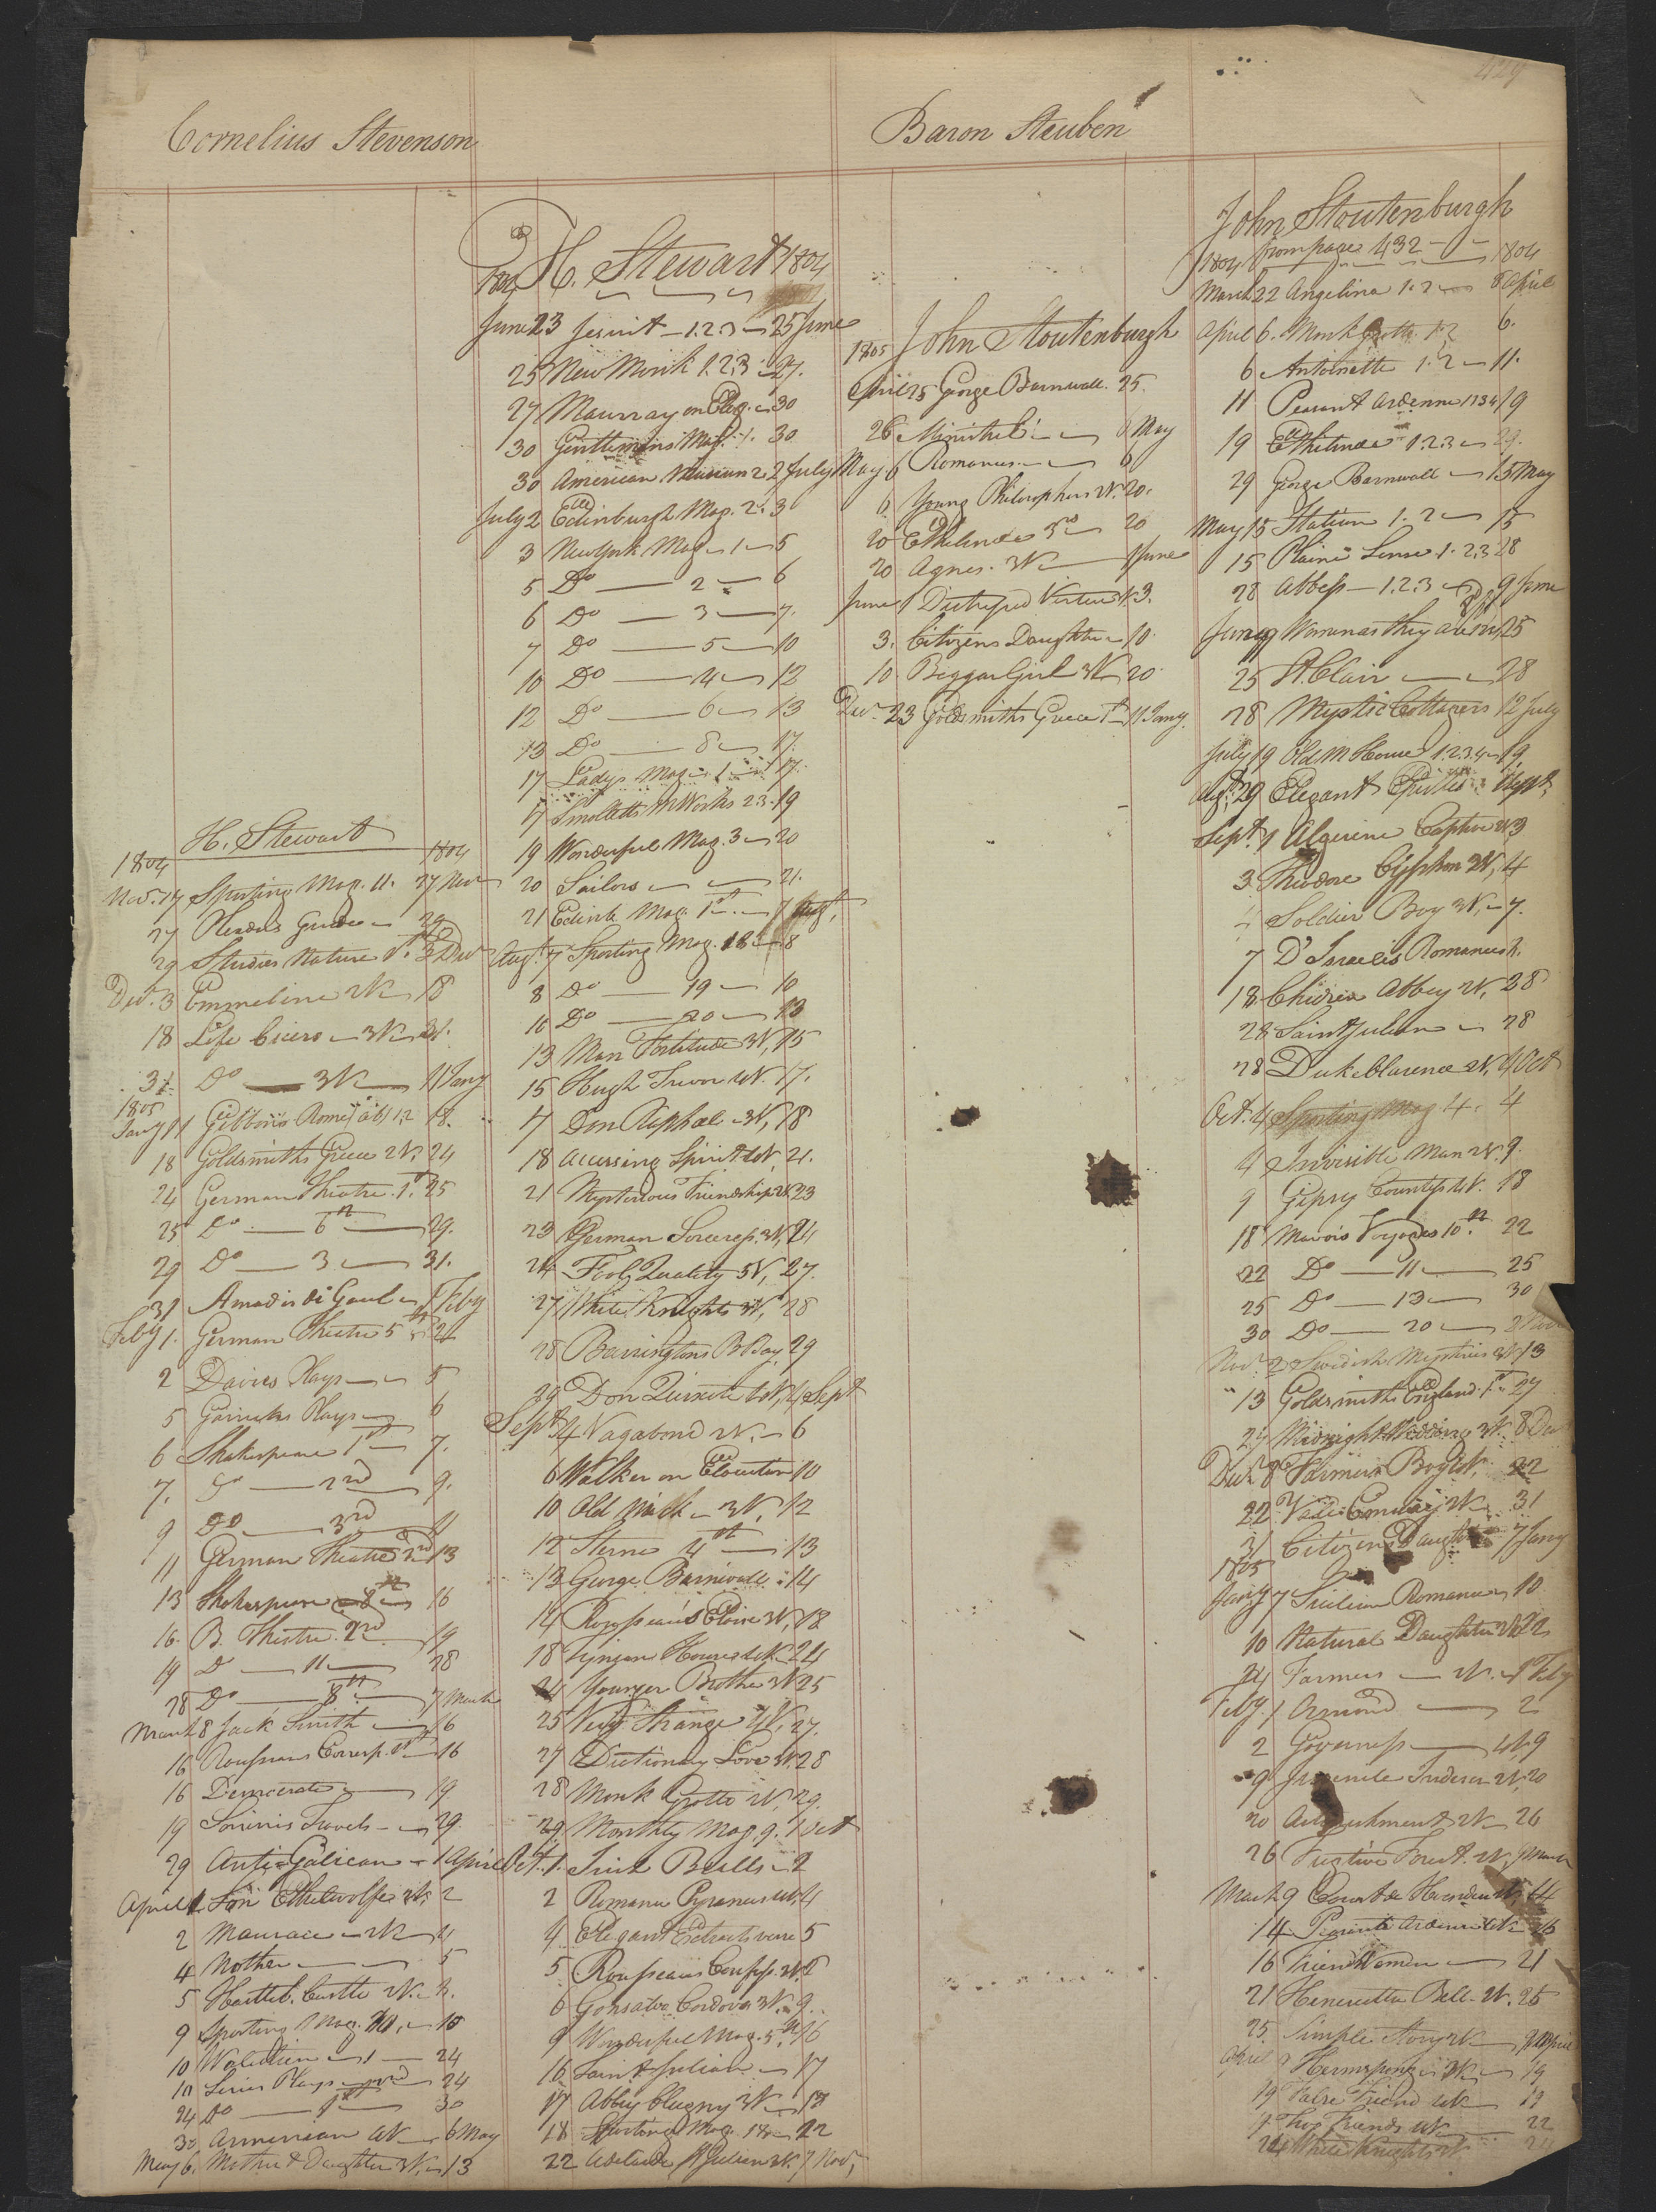 429
Cornelius Stevenson
H. Stewart
1804 1804
Novr. 27 Sporting Mag. 11. 27 Nov
27 Readers Guide 29
29 Studies Nature 1st 3 Decr
Decr. 3 Emmeline 2V. 18
18 Life Cicero 3V. 31.
31 Do 3V 11 Jany
1805
Jany 11 Gibbons Rome ab. 1.2 18.
18 Goldsmiths Greece 2V. 24
24 German Theatre 1st 25
25 Do 6th 29.
29 Do 3 31.
31 Amadis di Gaul 1 Feby
Feby 1. German Theatre 5th 2
2 Davies Plays 5
5 Garricks Plays 6
6 Shakespeare 1st 7.
7. Do 2nd 9.
9 Do 3rd 11
11 German Theatre 2nd 13
13 Shakespeare 8th 16
16. B. Theatre 2nd 19
19 Do 11 28
28 Do 8th 7 March
March 8 Jack Smith 16
16 Rousseaus Corresp. 16
16 Democrate 19
19 Soninis Travels 29.
29 Anti-Galican 1 April
April 1 Son Ethelwolfe 2
2 Mauraice 2V 4
4 Mother 5
5 Hartleb. Castle 2V.
9 Sporting Mag. 10
10 1 24
10 Series Plays 2nd 24
24 Do 1st 30
30 Armenian 4V 6 May
May 6. Mother & Daughter 3V. 13
H. Stewart 1804
1804
June 23 Jesuit 1.2.3 25 June
25 New Monk 1.2.3 27.
27 Maurray on Eleg. 30
30 Gentlemans Mag. 1. 30
30 American Museum 2. 2 July
July 2 Edinburgh Mag. 2. 3
3 New York Mag. 1 5
5 Do 2 6
6 Do 3 7.
7 Do 5 10
10 Do 4 12
12 Do 6 13
13 Do 8 17.
17 Ladys Mag. 1 17.
17 Smolletts Works 2.3. 19
19 Wonderful Mag. 3 20
20 Sailors 21.
21 Edinb. Mag. 1st 7 Augt.
Augt. 7 Sporting Mag. 18 8
8 Do 19 10
10 Do 20 13
13 Man Fortitude 3V, 15
15 Hugh Trevor 4V. 17.
17 Don Raphael 3V, 18
18 Accusing Spirit 4V, 21.
21 Mysterious Friendship 2V. 23
23 German Sorceress. 3V, 24
24 Fool Quality 5V, 27.
27 White Knights 3V, 28
28 Barringtons B Bay 29
29 Don Quixote 4V, 4 Sept
Sept 4 Vagabond 2V. 6
6 Walker on Elocution 10
10 Old Nick 3V. 12
12 Sterne 4th 13
13 George Barnwall 14
14 Roussseau's Eloise 3V, 18
18 Tynian Houres 4V. 24
24 Younger Brother 3V 25
25 Very Strange 4V, 27.
27 Dictionary Love 2V. 28
28 Monk Grotto 2V, 29.
29 Monthly Mag. 9. 1 Oct
Oct. 1. Trial Bealls 2
2 Romance Pyranees 4V. 4
4 Elegant Extracts verse 5
5 Rousseaus Confess. 2V. 6
6 Gonsalva Cordova 3V. 9
9 Wonderful Mag. 5th 16
16 Saint Julian 17
17 Abbey Clugny 3V 18
18 Sporting Mag. 18 22
22 Adelaide St Julien 2V. 7 Novr.
Baron Steuben
John Stoutenburgh
1805
April 25 George Barnwall. 25.
26 Minstrel 6 May
May 6 Romances 6
6 Young Philosophers 2V. 20.
20 Ethelinda 3rd 20
20 Agnes. 3V 1 June
June 1 Distressed Virtue 1V 3.
3. Citizens Daughter 10
10. Beggar Girl 3V 20
Decr. 23 Goldsmiths Greece 1st 11 Jany.
John Stoutenburgh
from page 432
1804 1804
March 22 Angelina 1.2 6 April
April 6. Monk Grotto. 1.2 6.
6 Antoinette 1.2 11.
11 Peasant Ardenne 1234 19
19 Ethelinda 1.2.3 29.
29 George Barnwall 15 May
May 15 Station 1.2 15
15 Plaine Sense 1.2.3 28
28 Abbess 1.2.3 9 June
June 9 Woman as they are 25
25 St. Clair 28
28 Mystic Cottagers 12 July
July 19 Old M House 1.2.3.4 19
Augt. 29 Elegant Epistles 1 Sept
Sept. 1 Algerine Captive 2V 3
3. Theodore Cyphon 2V, 4
4 Soldier Boy 3V, 7.
7 D'Israelis Romances 12.
12 Children Abbey 2V, 28
28 Saint Julian 28
28 Duke Clarence 2V, 4 Oct
Oct. 4 Sporting Mag 4. 4
4 Invisible Man 2V. 9.
9 Gipsy Countess 4V. 18
18 Mavors Voyages 10th. 22
22 Do 11 25
25 Do 13 30
30 Do 20 2 Nov
Novr. 2 Swedish Mysteries 3V 13
13 Goldsmiths England 1st 27
27 Midnight Wedding 3V. 8 Dec
Decr. 8 Farmers Boy 1V. 22
22 2V. 31
31 Citizens Daughter 7 Jany
1805
Jany 7 Sicilian Romance 10
10 Natural Daughter 2V. 22
24 Farmers 2V. 1 Feby
Feby. 1 Ormond 2
2 Governess 4V. 9
9 Juvenile 2V. 20
20 Attachment 2V 26
26 Fugitive Forest. 2V, March
March 9 Count de 14
14 Peasant Ardenne 4V 16
16 Friend Women 21
21 Henrietta Bell. 2V. 25
25 Simple Story 2V April
April Hermsprong 19
19 False Friend 4V 19
19 Two Friends 4V 22
24 White Knights 3V